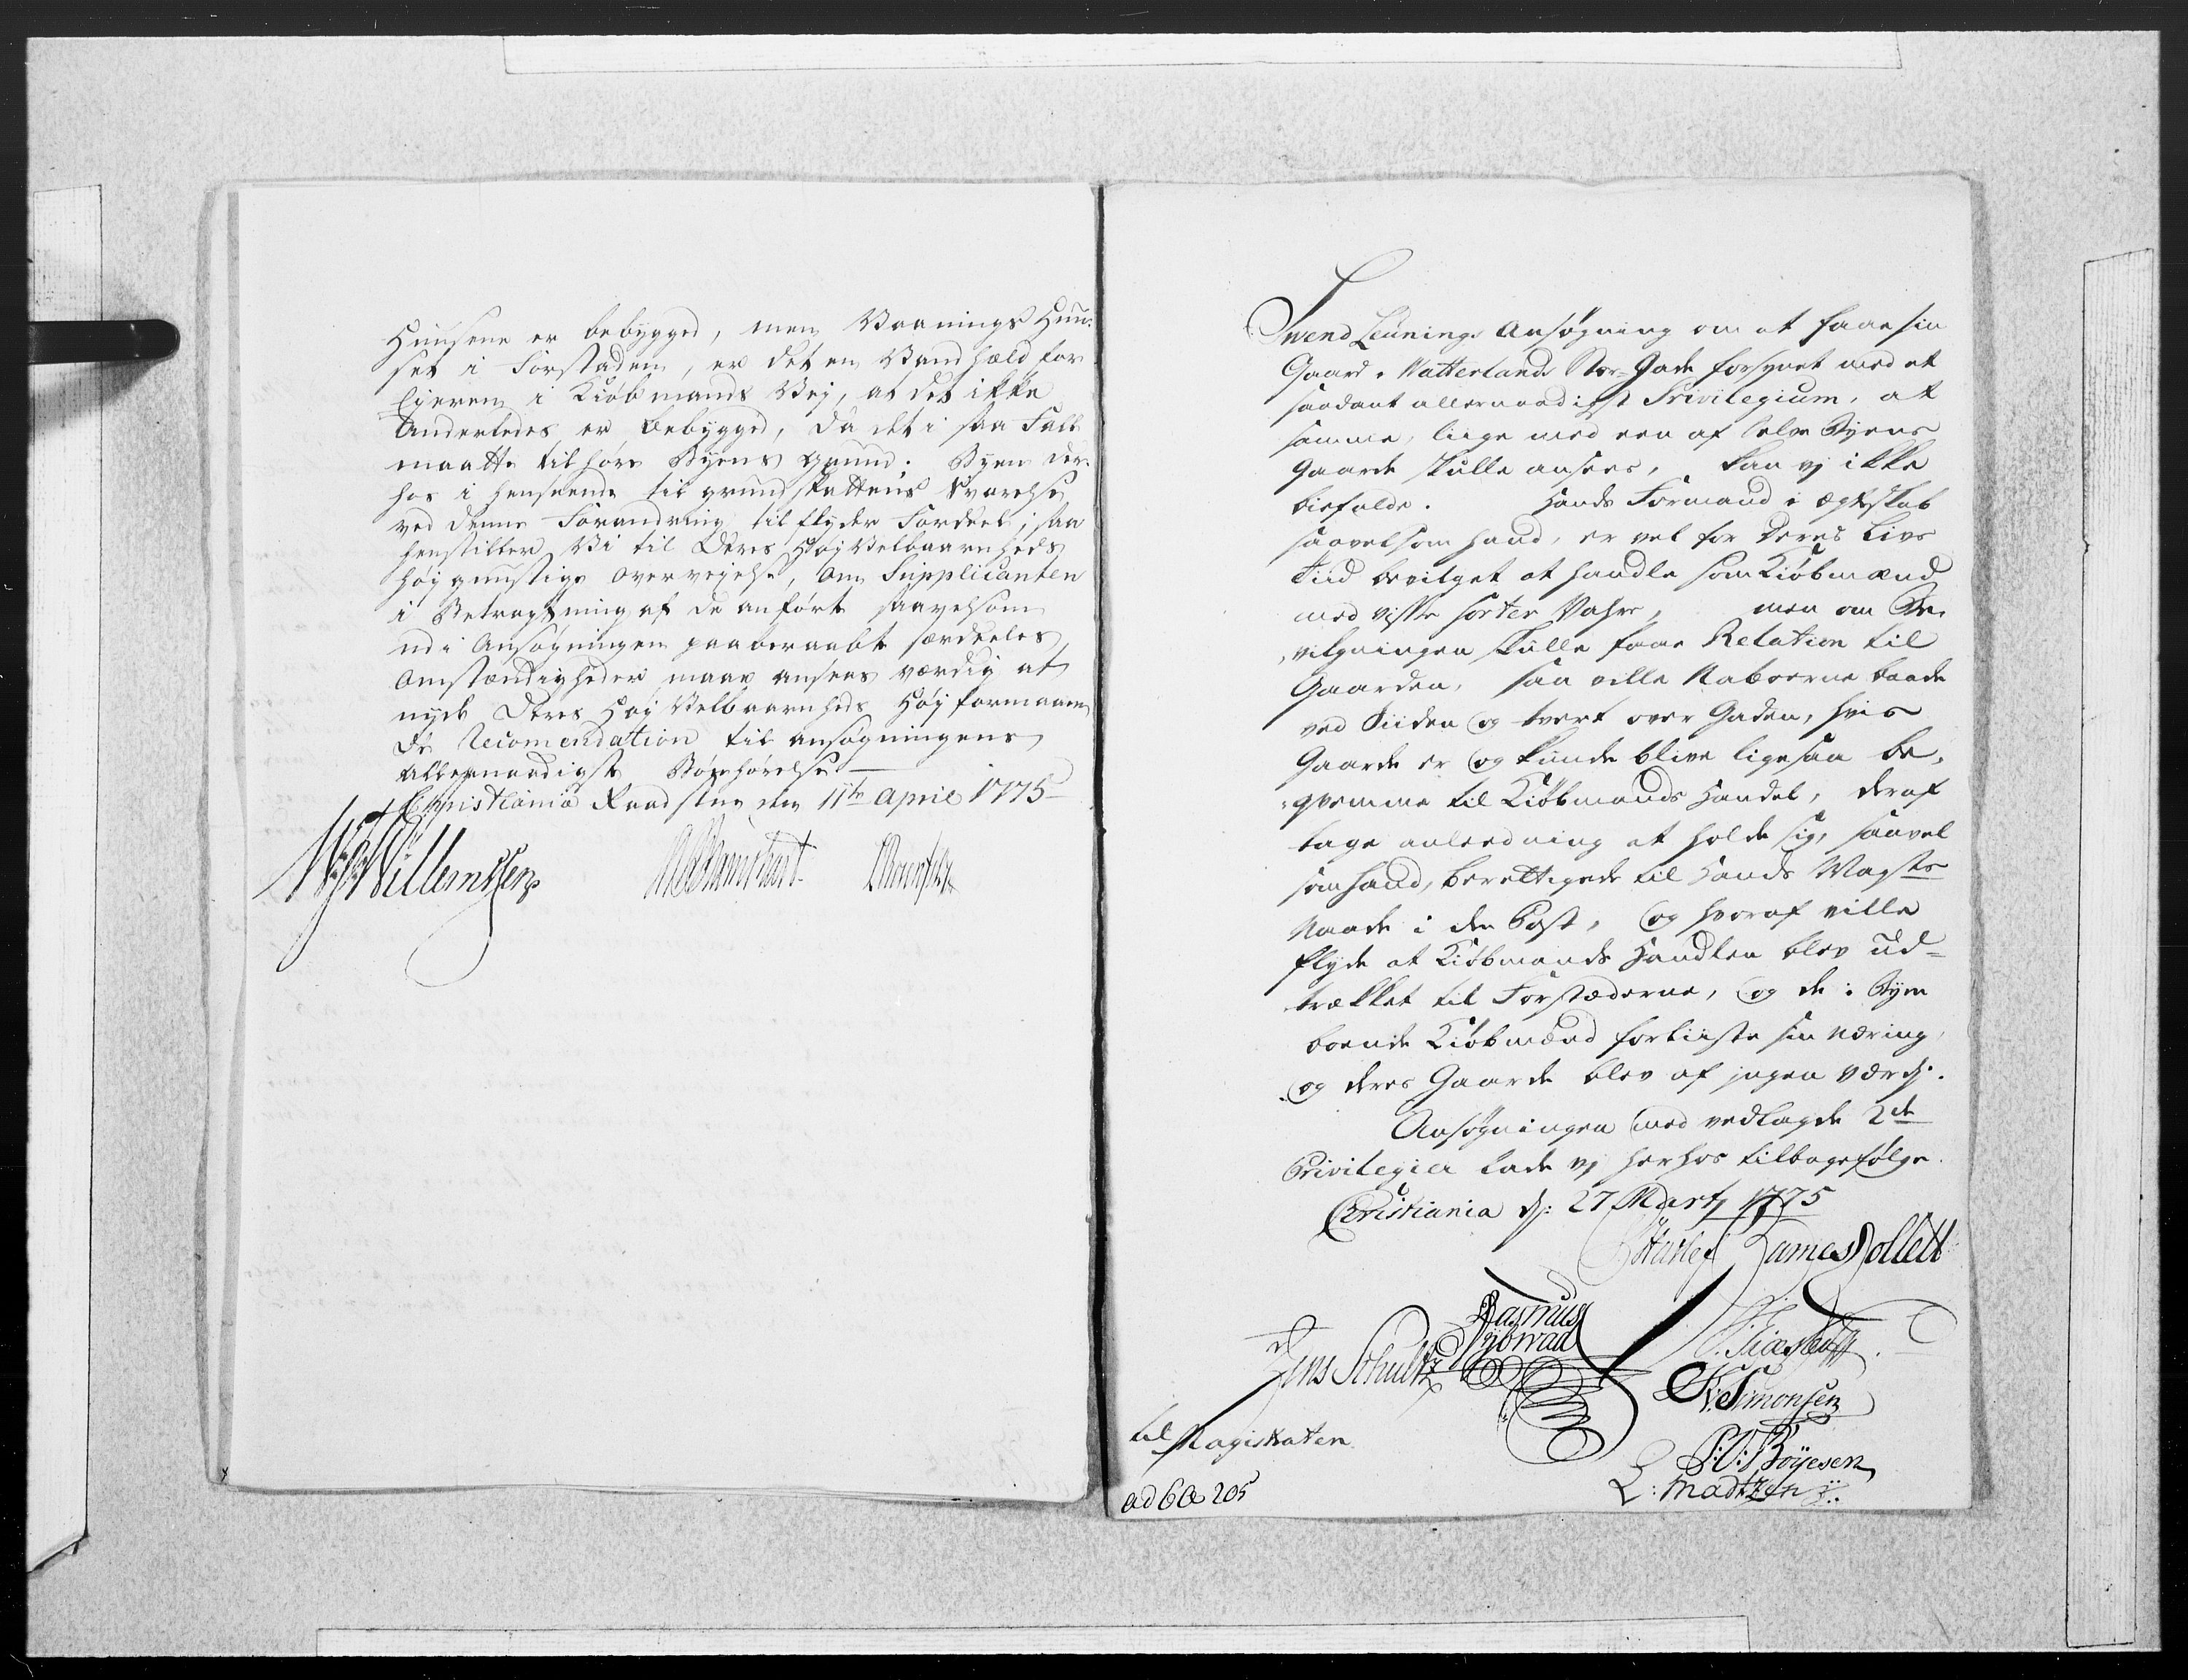 Huusene er bebygged, men Vaanings Huu-
set i Forstaden, er det en Vandhæld for
Ejeren i Kiøbmands Vej, at det ikke
Anderledes er bebygged, da det i saa Fald
maatte tilhøre Byens grund; Byen der-
hos i henseende til grundskattens Svarelse
ved denne Forandring tilflyder Fordeel; saa
henstiller Vi til Deres HøjVelbaarenheds
høj gunstige overvejelse, Om Supplicanten
i Betragtning af de anførte saavelsom
udi Ansøgningen paaberaabte særdeeles
Omstændigheder maae ansees værdig at
nyde Deres Høj Velbaarenheds Høj formaaen-
de Recomendation til ansøgningens
allernaadigste Bønhørelse
Christiania Raadstue den 11te April 1775
Willemssen
Svend Leunings Ansøgning om at faae sin
Gaard i Watterlands Stor-Gade forsynet med et
saadant allernaadigst Privilegium, at
samme, liige med een af selve Byens
Gaarde skulle ansees, kan vj ikke
biefalde. Hands Formand i ægteskab
saavelsom hand, er vel for Deres Livs
Tiid bevilget at handle som Kiøbmænd
med visse sorter Vahre, men om Be-
vilgningen skulle faae Relation til
Gaarden, saa ville Naboerne baade
ved Siiden og tvert over Gaden, hvis
Gaarde er og kunde blive ligesaa be-
qvemme til Kiøbmands Handel, deraf
tage anleedning at holde sig, saavel
som hand, berettigede til Hands Mayts
Naade i den Post, og hvoraf ville
flyde at Kiøbmands Handlen blev ud-
trækket til Forstæderne, og de i Byen
boende Kiøbmænd forliiste sin næring,
og deres Gaarde blev af jngen værdj.
Ansøgningen med vedlagde 2de
Privilegier lade vj herhos tilbagefølge.
Christiania dj: 27 Martj 1775
James Collett
Rasmus
Jens Schultz
N: Simonsen
P: V: Böyesen
L: Madtzen
til Magistraten
ad 6 205